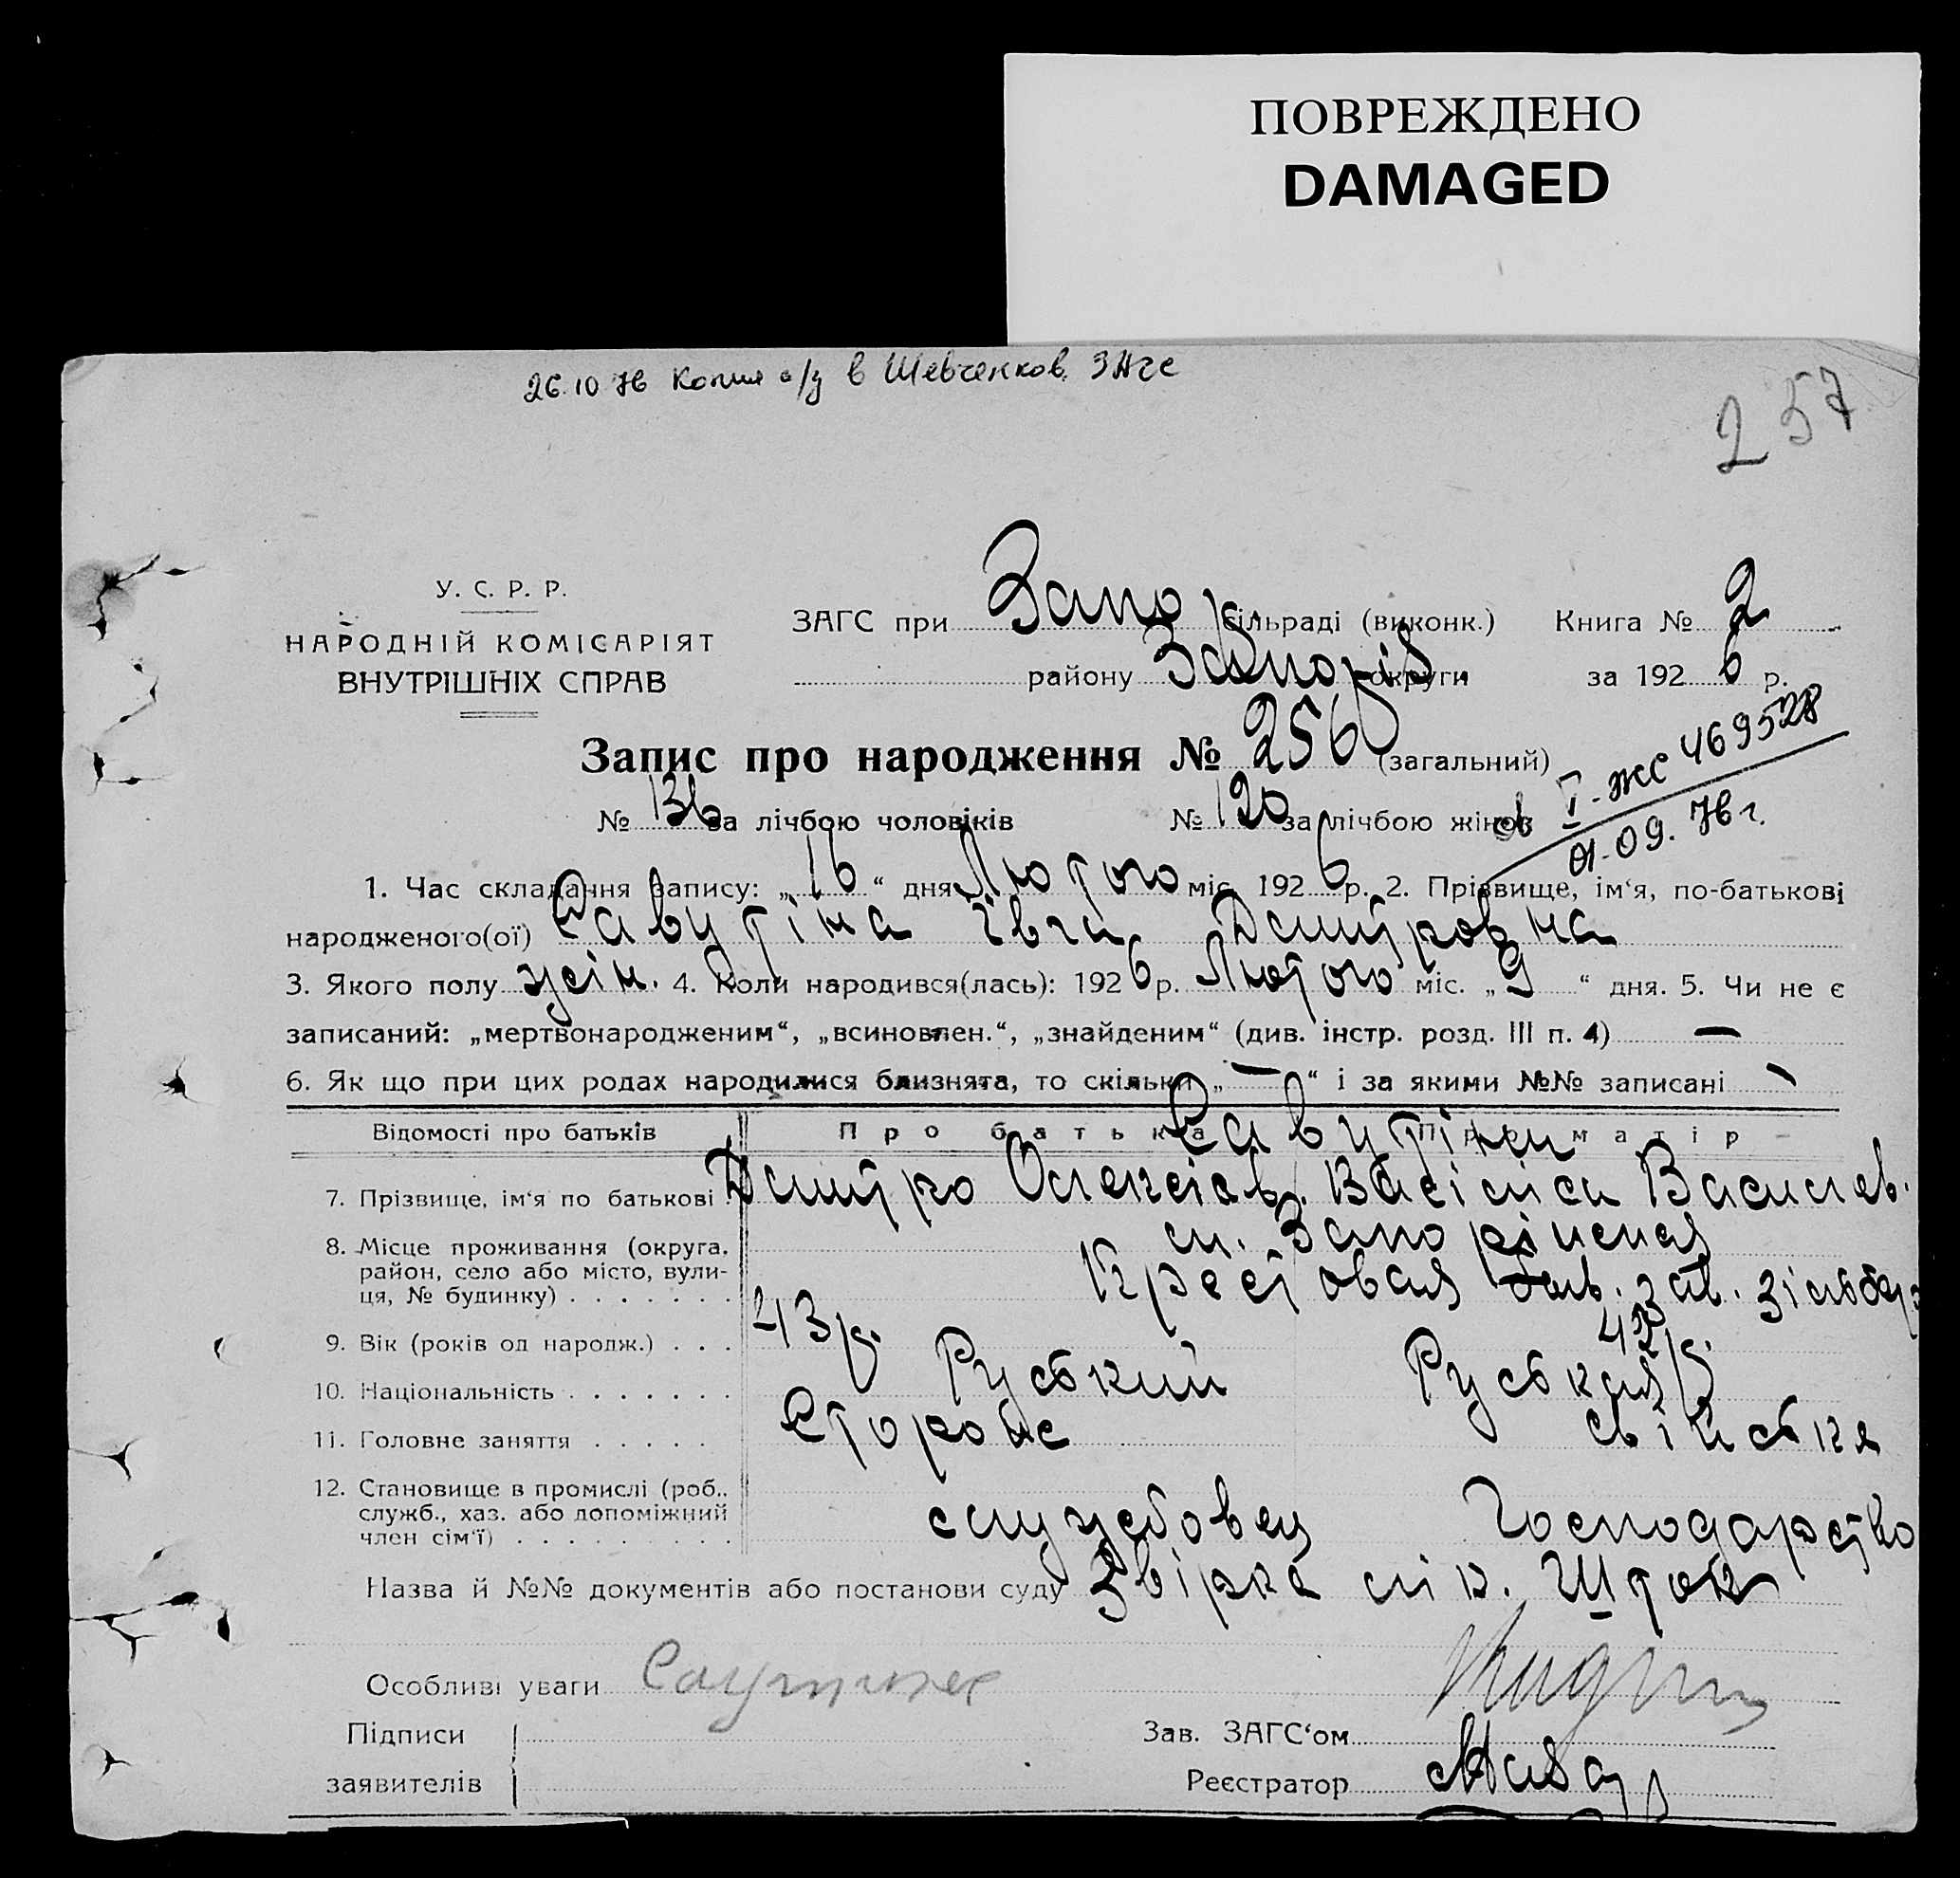 ПОВРЕЖДЕНО
DAMAGED
26.10.76 Копия а/з в Шевченков. ЗАГС
257
У. С. Р. Р.
НАРОДНІЙ КОМІСАРІЯТ
ВНУТРІШНІХ СПРАВ
ЗАГС при Запор сільраді (виконк.) Книга № 2
району Запоріз. округи за 1926 р.
Запис про народження № 256 (загальний)
I-ЖС 469528
01.09.76 г.
№ 136 за лічбою чоловіків № 120 за лічбою жінок
1. Час складання запису: „16“ дня Лютого міс. 1926 р. 2. Прізвище, ім‘я, по-батькові
народженого(ої) Савутіна Івга Дмитровна
3. Якого полу жін. 4. Коли народився(лась): 1926 р. Лютого міс. „9“ дня. 5. Чи не є
записаний: „мертвонародженим“, „всиновлен.“, „знайденим“ (див. інстр. розд. III п. 4) —
6. Як що при цих родах народилися близнята, то скільки „—“ і за якими №№ записані —
Відомості про батьків Про батька Про матір
Савутіни
7. Прізвище, ім‘я по батькові Дмитро Олексієв. Васіліса Василев.
8. Місце проживання (округа, район, село або місто, вулиця, № будинку) м. Запоріжжя
Крестовая
9. Вік (років од народж.) 43 р. 42 р.
10. Національність Руський Руська
11. Головне заняття Стороже
12. Становище в промислі (роб., служб., хаз. або допоміжний член сім‘ї) службовец Господарство
Назва й №№ документів або постанови суду Звірка лік. Шток
Особливі уваги
Підписи
заявителів
Зав. ЗАГС‘ом
Реєстратор